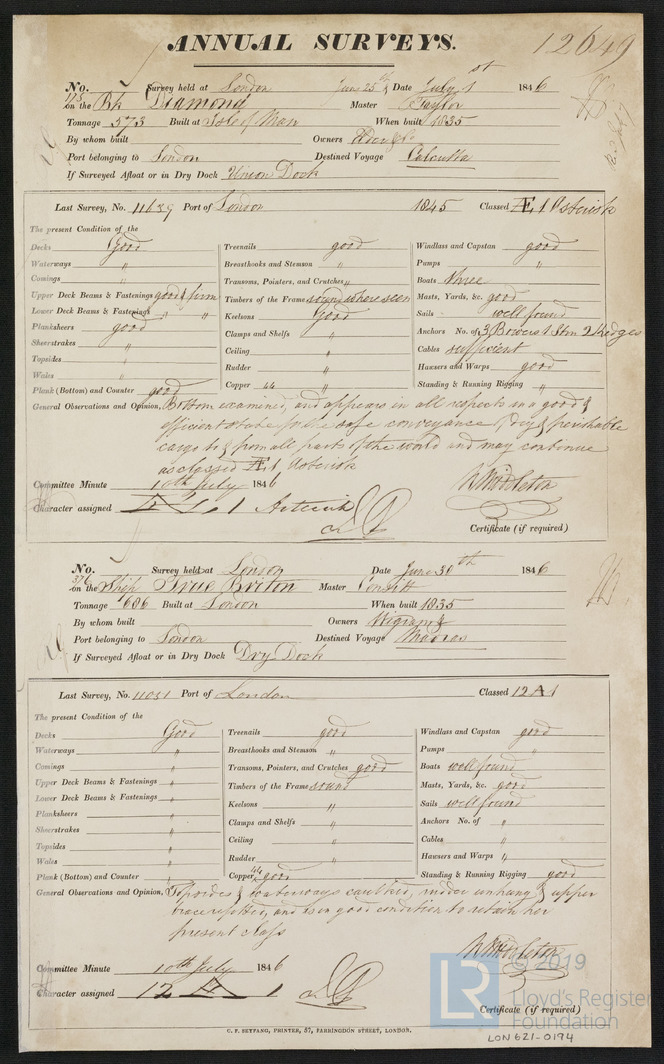 ANNUAL SURVEYS. 12649
No. 375 Survey held at London June 25th & Date July 1st 1846
on the Bk Diamond Master Taylor
Tonnage 573 Built at Isle of Man When built 1835
By whom built Owners
Port belonging to London Destined Voyage Calcutta
If Surveyed Afloat or in Dry Dock Union Dock
Last Survey, No. 11639 Port of London 1845 Classed Æ 1 Asterisk
The present Condition of the
Decks Good Treenails good Windlass and Capstan good
Waterways " Breasthooks and Stemson " Pumps "
Comings " Transoms, Pointers, and Crutches " Boats three
Upper Deck Beams & Fastenings good & firm Timbers of the Frame sound where seen Masts, Yards, &c. good
Lower Deck Beams & Fastenings " " Keelsons Good Sails well found
Planksheers good Clamps and Shelfs " Anchors No. of 3 Bowers 1 Strm 2 Kedges
Sheerstrakes " Ceiling " Cables sufficient
Topsides " Rudder " Hawsers and Warps good
Wales " Copper 44 " Standing & Running Rigging "
Plank (Bottom) and Counter good
General Observations and Opinion, Bottom examined, and appears in all respects in a good &
efficient state for the safe conveyance of dry & perishable
cargo to & from all parts of the world and may continue
as classed Æ 1 Asterisk
Committee Minute 10th July 1846 R Middleton
Character assigned Æ 1 Asterisk
Certificate (if required)
No. 376 Survey held at London Date June 30th 1846
on the Ship True Briton Master Consitt
Tonnage 686 Built at London When built 1835
By whom built Owners Wigram &
Port belonging to London Destined Voyage Madras
If Surveyed Afloat or in Dry Dock Dry Dock
Last Survey, No. 11031 Port of London Classed 12 A 1
The present Condition of the
Decks Good Treenails good Windlass and Capstan good
Waterways " Breasthooks and Stemson " Pumps "
Comings " Transoms, Pointers, and Crutches good Boats well found
Upper Deck Beams & Fastenings " Timbers of the Frame sound Masts, Yards, &c. good
Lower Deck Beams & Fastenings " Keelsons " Sails well found
Planksheers " Clamps and Shelfs " Anchors No. of "
Sheerstrakes " Ceiling " Cables "
Topsides " Rudder " Hawsers and Warps "
Wales " Copper 44 good Standing & Running Rigging good
Plank (Bottom) and Counter "
General Observations and Opinion, Topsides & waterways caulked, rudder unhung & upper
brace refitted, and is in good condition to retain her
present class
R Middleton
Committee Minute 10th July 1846
Character assigned 12 A 1
Certificate (if required)
C. F. SEYFANG, PRINTER, 57, FARRINGDON STREET, LONDON.
© 2019
LR Lloyd's Register
Foundation
LON 621-0194